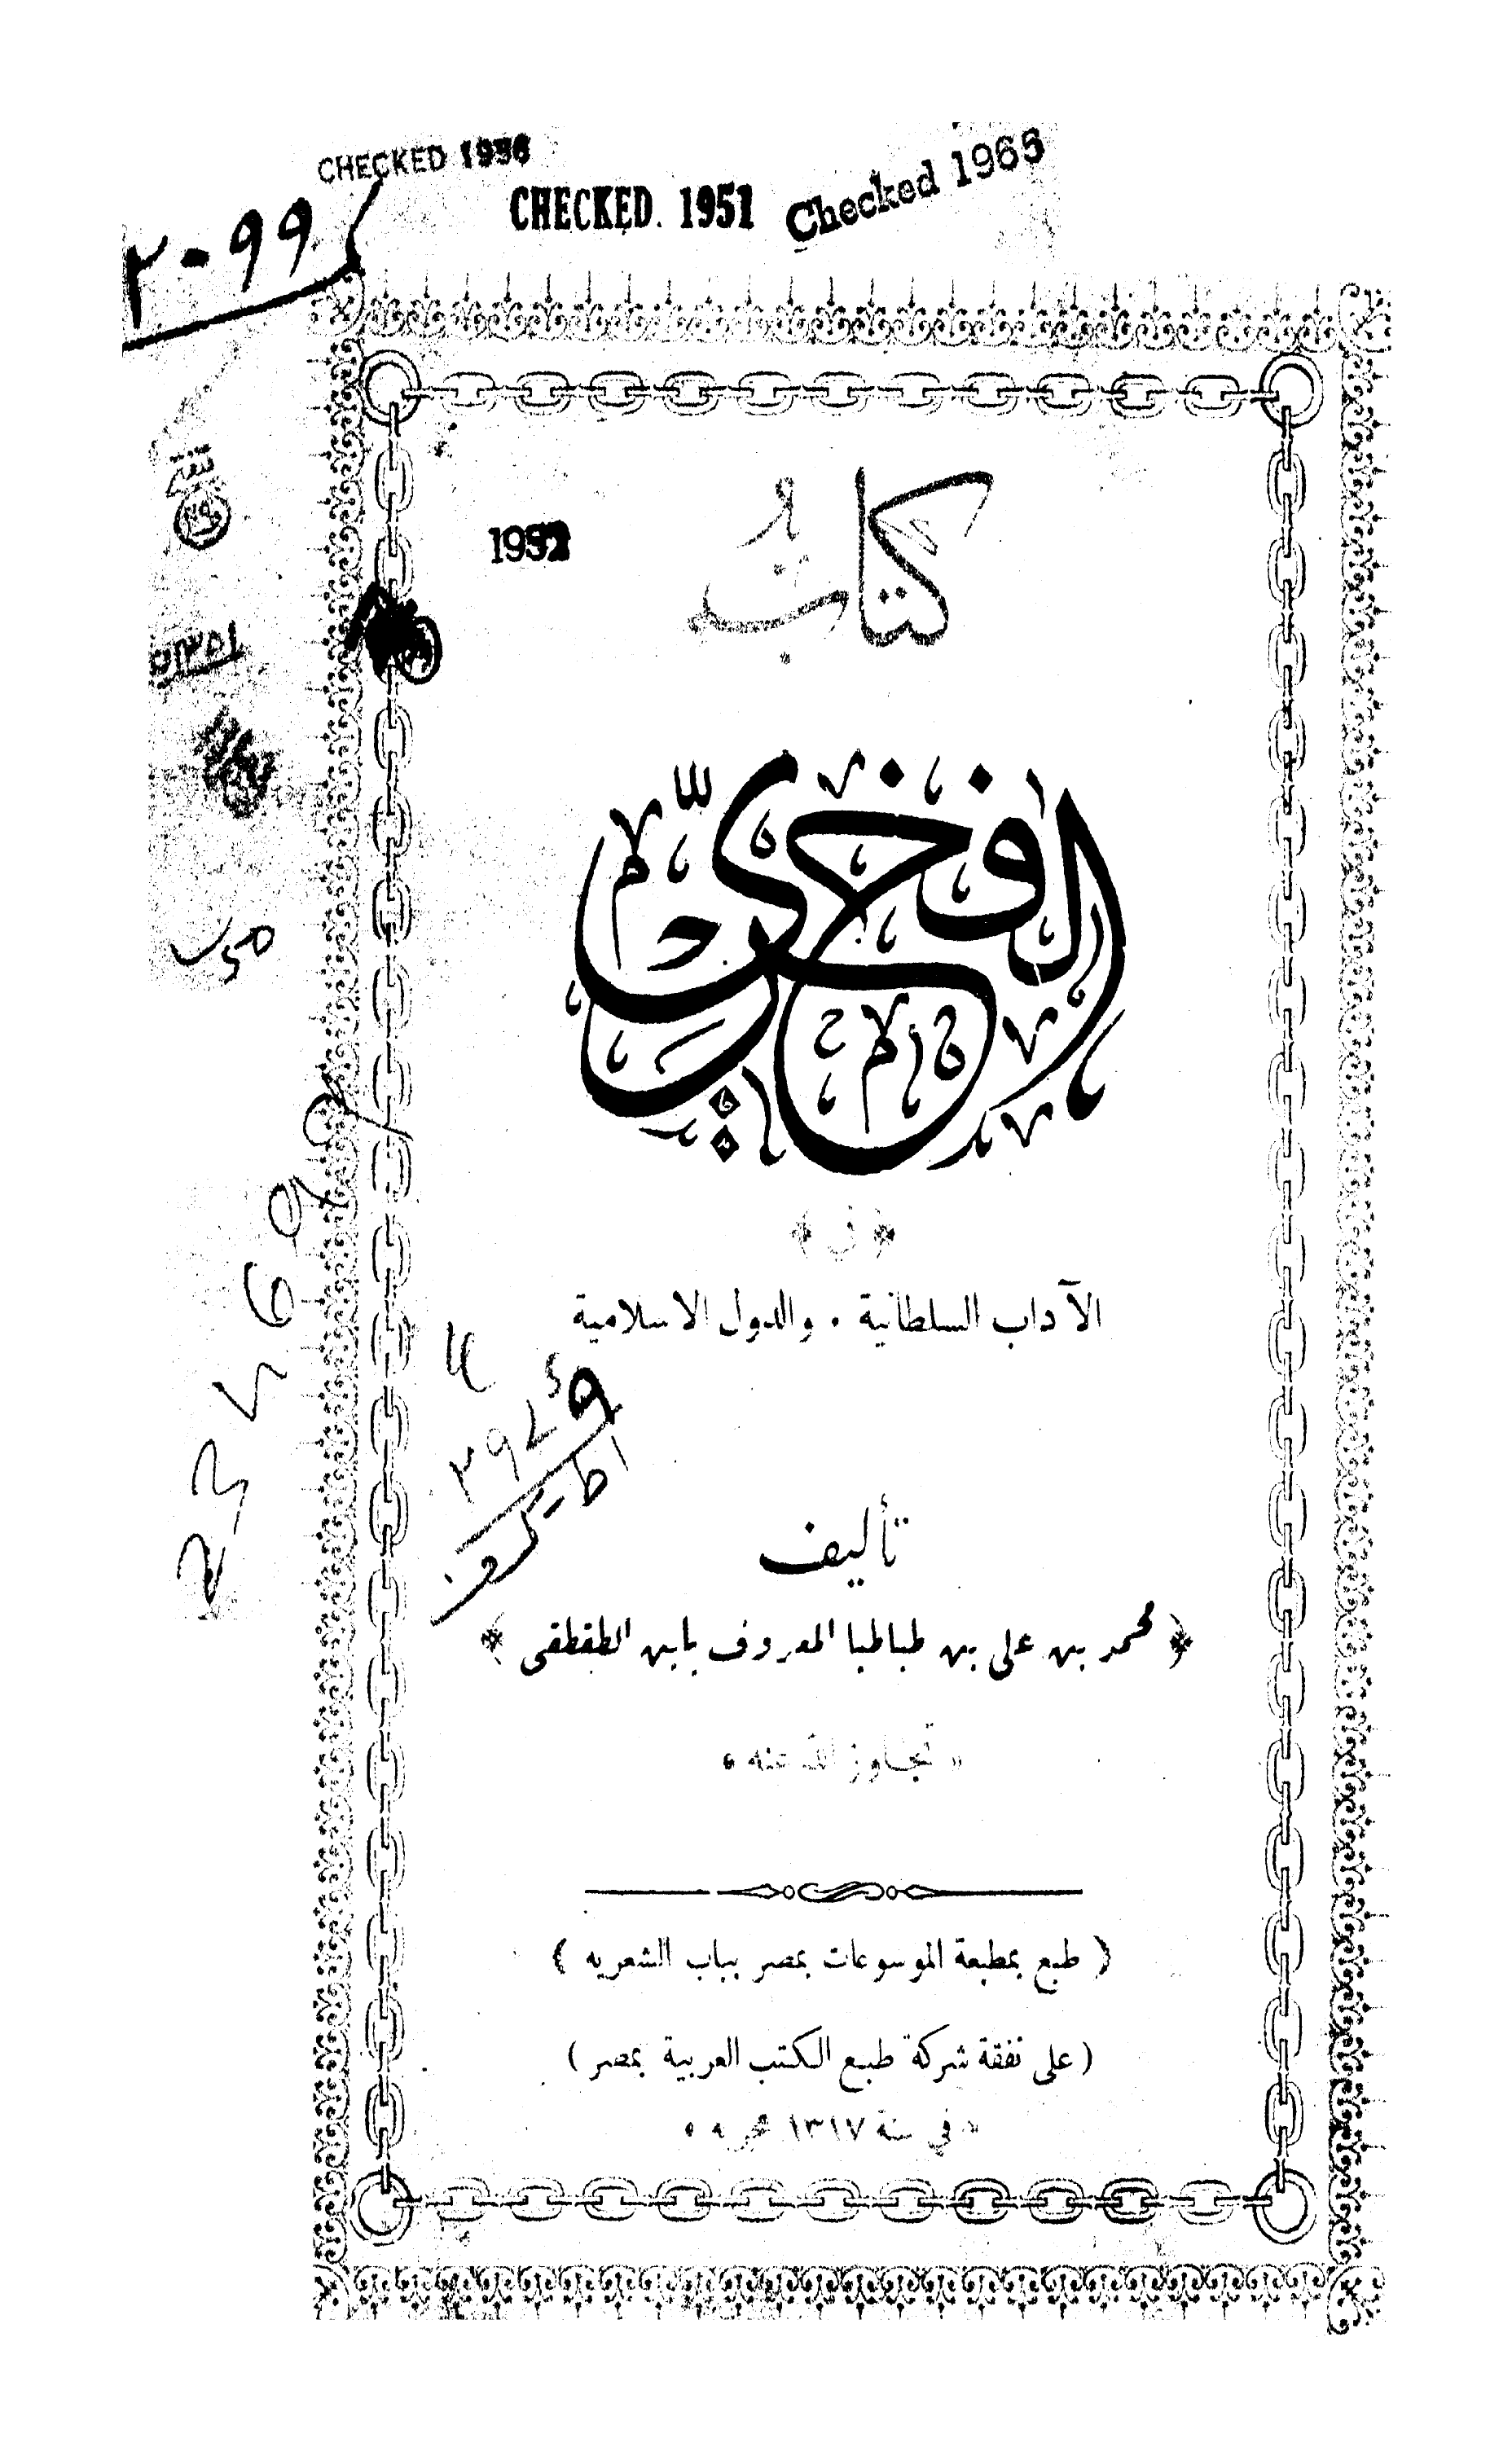 CHECKED 1956
CHECKED. 1951
Checked 1965
٢٠٩٩
1952
كتاب
الفخري
﴿ في ﴾
الآداب السلطانية ٠ والدول الاسلامية
تأليف
﴿ محمد بن علي بن طباطبا المعروف بابن الطقطقى ﴾
« تجاوز الله عنه »
﴿ طبع بمطبعة الموسوعات بمصر بباب الشعريه ﴾
( على نفقة شركة طبع الكتب العربية بمصر )
« في سنة ١٣١٧ هجريه »